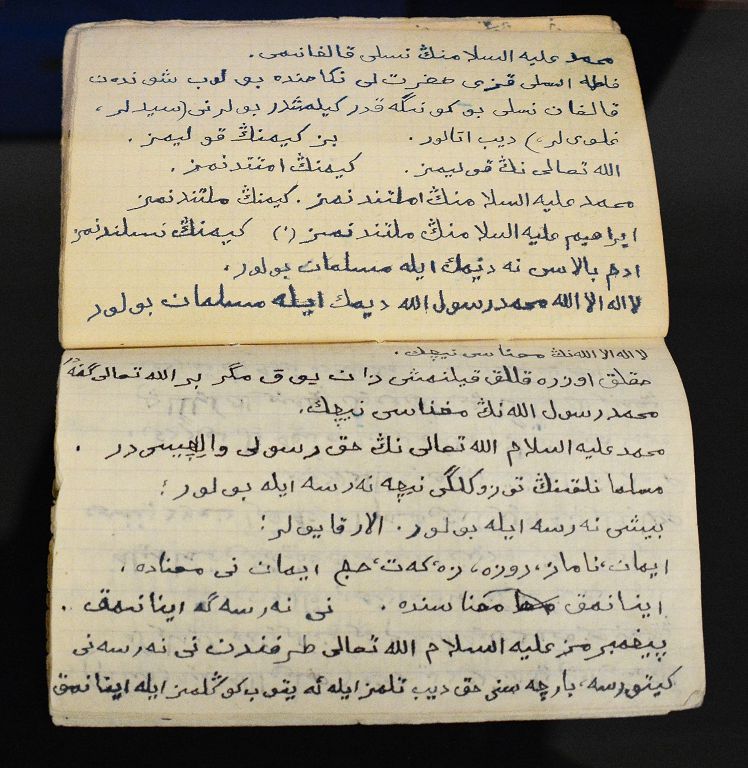 محمد عليه السلامنڭ نسلى قالغانمى.
فاطمه اسملى قزى حضرت لى نكاحنده بولوب شوندن
قالغان نسلى بو كوننگه قدر كيلمشدر بولرنى (سيدلر،
علوى لر،) ديب اتالور. بز كيمنڭ قوليمز.
الله تعالى نڭ قوليمز. كيمنڭ امتتدنمز.
محمد عليه السلامنڭ امتتدنمز. كيمنڭ ملتندنمز
ابراهيم عليه السلامنڭ ملتندنمز (۱) كيمنڭ نسلندنمز
ادم بالاسى نه ديمك ايله مسلمان بولور.
لا اله الا الله محمد رسول الله ديمك ايله مسلمان بولور
لا اله الا الله نڭ معناسى نيچك.
حقلق اوزره قللق قيلنمش ذات يوق مگر بر الله تعالى گنه
محمد رسول الله نڭ معناسى نيچك.
محمد عليه السلام الله تعالى نڭ حق رسولى و ايلچيسى در.
مسلمانلقنڭ توزوكلگى نيچه نه رسه ايله بولور؛
بيشى نه رسه ايله بولور. الار قايولر؛
ايمان، ناماز، روزه، زه كه ت، حج ايمان نى معناده؛
اينانمق معناسنده. نى نه رسه گه اينانمق.
پيغمبرمز عليه السلام الله تعالى طرفندن نى نه رسه نى
كيتورسه، بارچه سنى حق ديب تلمز ايله ئه يتوب كوڭلمز ايله اينانمق